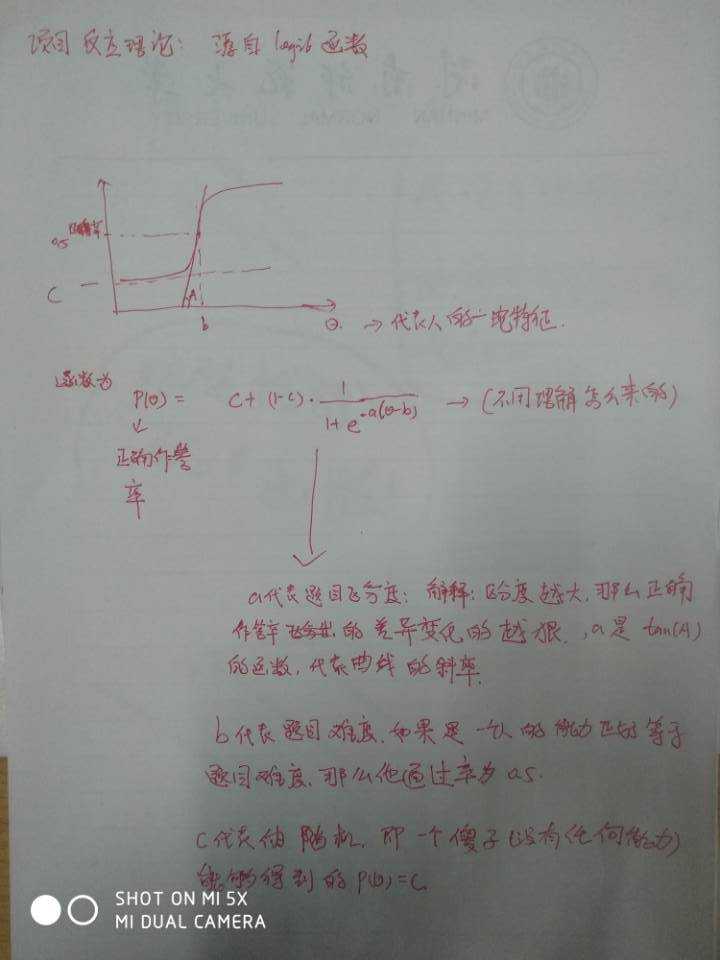 项目反应理论: 源自 logit 函数
正确率
0.5
C
A
b
θ. → 代表人的一堆特征.
函数为
P(θ) = C + (1-C) · 1 / (1 + e^-a(θ-b)) → (不用理解怎么来的)
正确作答
率
a代表题目区分度: 解释: 区分度越大, 那么正确
作答率 的差异变化的越狠, a是 tan(A)
的函数, 代表曲线的斜率.
b代表题目难度, 如果是一个人的能力正好等于
题目难度, 那么他通过率为 0.5.
C代表伪随机, 即一个傻子(没有任何能力)
能够得到的 P(θ)=C
SHOT ON MI 5X
MI DUAL CAMERA